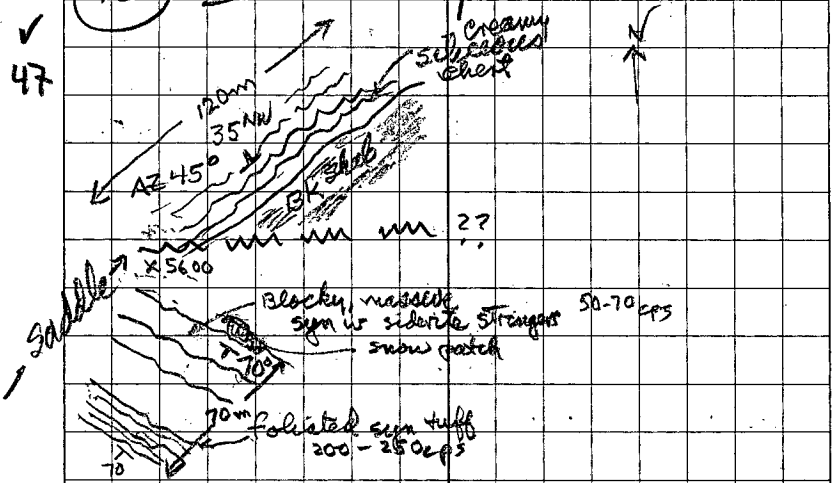 ✓
47
N
Creamy
siliceous
chert
120m
35 NW
AZ 45°
BK Shale
??
x 5600
Saddle
Blocky, massive
syn w siderite stringers 50-70 cps
snow patch
70°
70m
foliated syn tuff
200 - 250 cps
70